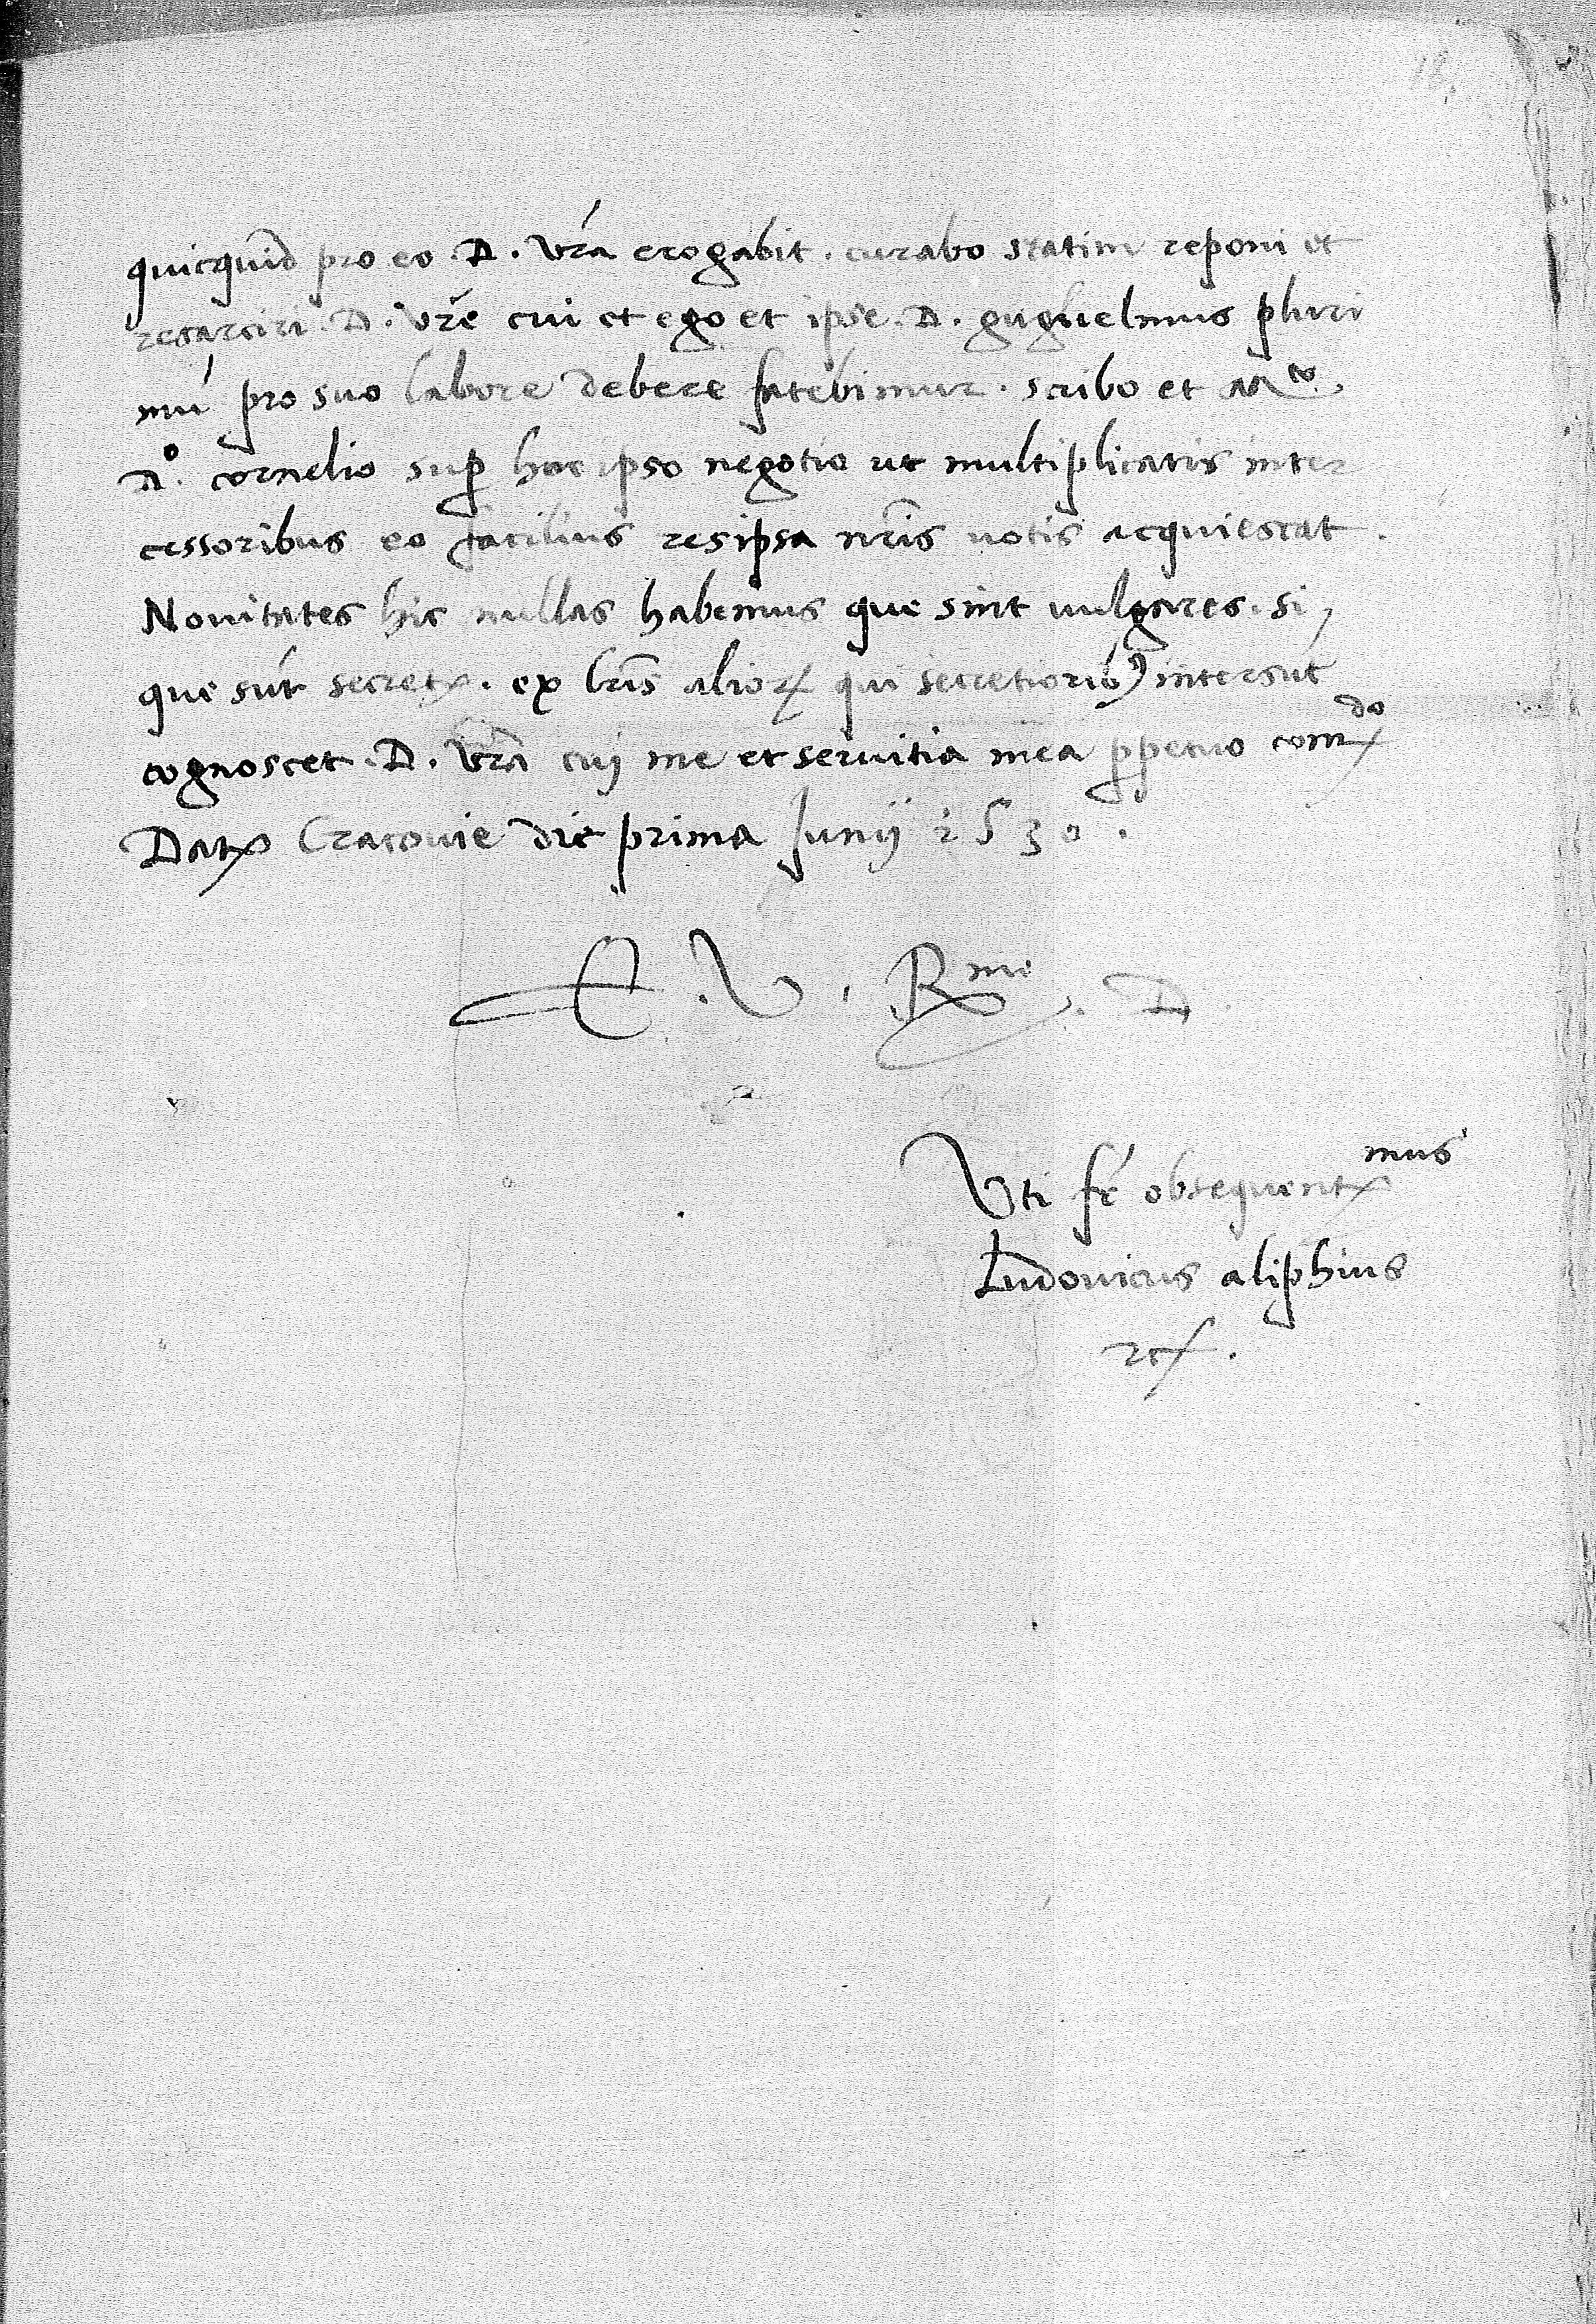 quicquid pro eo . D . vr̃a erogabit . curabo statim reponi et
resarciri . D . vr̃e cui et ego et ipse . D . guglielmus pluri
mũ pro suo labore debere fatebimur . scribo et Mco.
Do. cornelio sup̱ hoc ipso negotio ut multiplicatis inter
cessoribus eo facilius res ipsa nr̃is uotis acquiescat .
Nouitates hic nullas habemus que sint uulgares . si
que sút secretꝭ . ex lr̃is alioꝝ qui secretiorib9 intersút
cognoscet . D . Vr̃a cuj me et seruitia mea ꝑpetuo comdo
Datꝭ Cracouie die prima Junij 1530 .
E . V . Rme . D
Uti fr̃ obsequentmus
Ludouicus aliphius